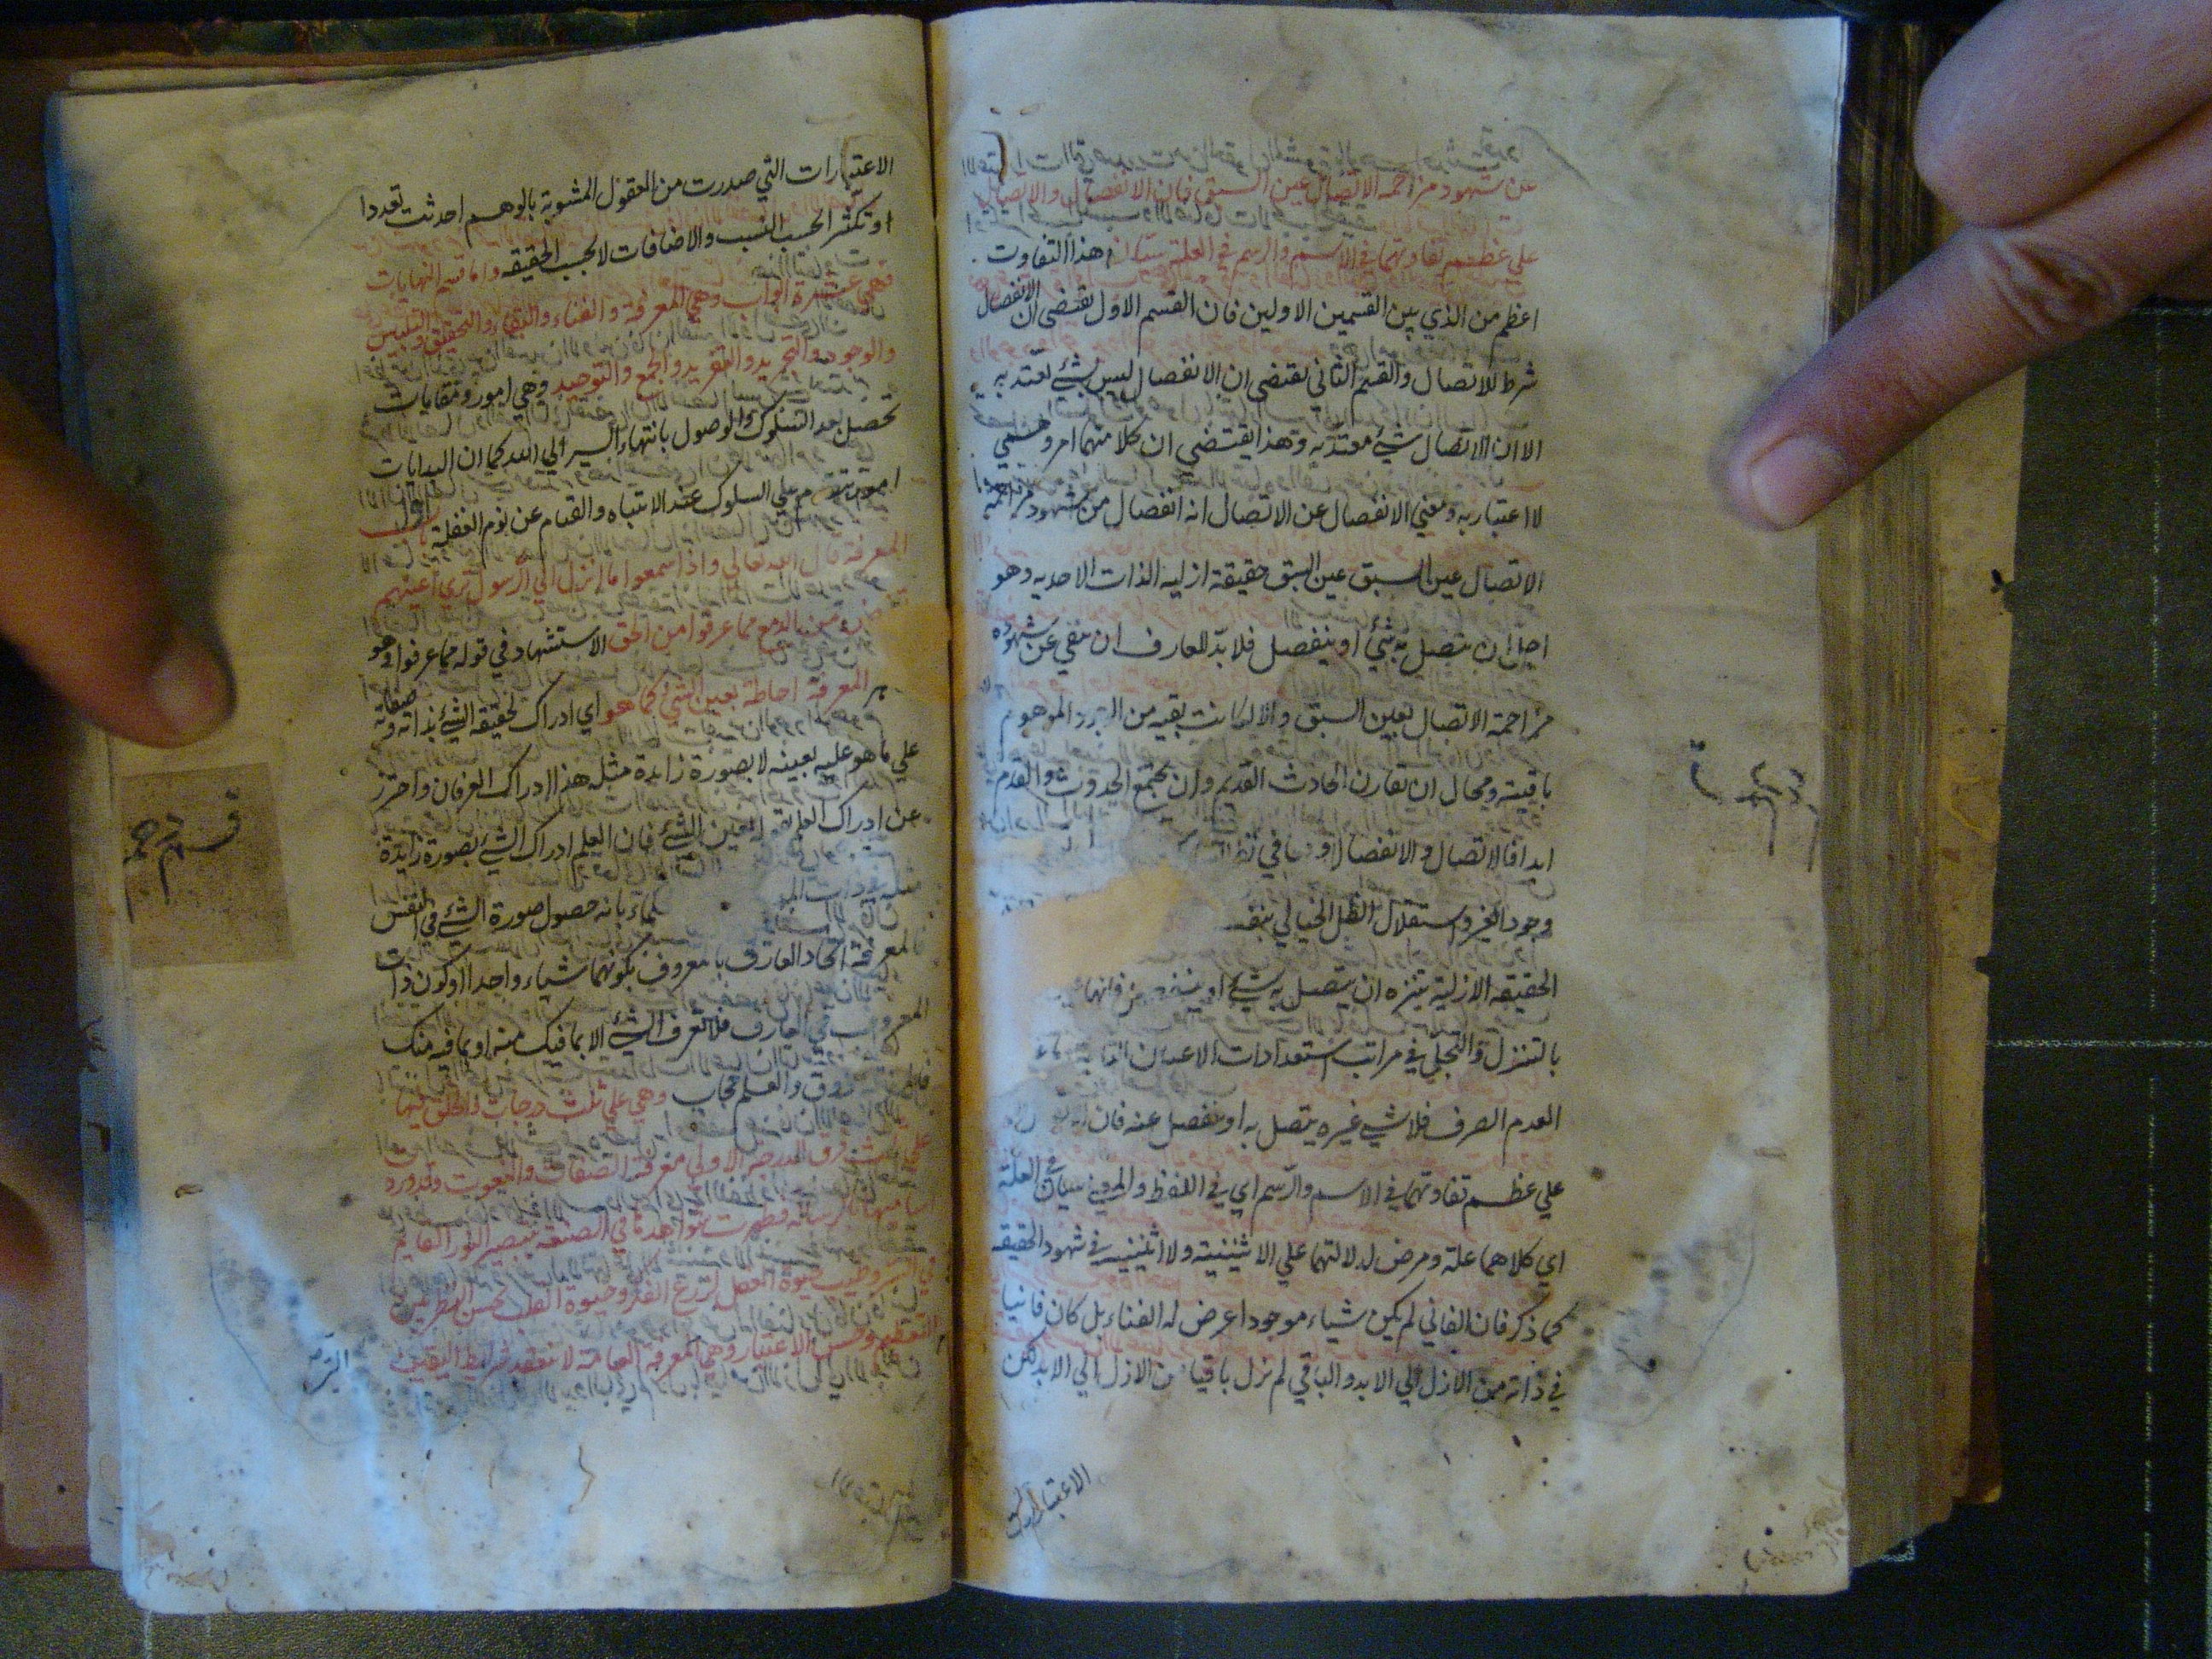 عن شهود مزاحمة الاتصال عين السبق فان الانفصال والاتصال
علي عظم تفاوتهما في الاسم والرسم في العلة سيان هذا التفاوت
اعظم من الذي بين القسمين الاولين فان القسم الاول يقتضي ان الانفصال
شرط للاتصال والقسم الثاني يقتضي ان الانفصال ليس بشئ يعتد به
الا ان الاتصال شئ معتد به وهذا يقتضي ان كلا منهما امر وهمي
لا اعتبار به ومعني الانفصال عن الاتصال انه انفصال من شهود مزاحمة
الاتصال عين السبق عين السبق حقيقة ازليه الذات الاحديه وهو
اجل ان يتصل به شئ او ينفصل فلا بد للعارف ان ينفي عن شهوده
مزاحمة الاتصال بعين السبق والا لكانت بقيه من الموهوم
باقية ومحال ان تقارن الحادث القديم وان يجتمع الحدوث والقدم
ابدا فالاتصال والانفصال في
وجود الغير واستقلال الظل الخيالي بنفسه
الحقيقه الازلية تتنزه ان يتصل به شئ او ينفصل فانها
بالتنزل والتجلي في مراتب استعدادات الاعيان
العدم الصرف فلا شئ غيره يتصل به او ينفصل عنه فان
علي عظم تفاوتهما في الاسم والرسم اي في اللفظ والمعني سيان في العلة
اي كلاهما علة ومرض لدلالتهما علي الاثنينية ولا اثنينية في شهود الحقيقه
كما ذكر فان الفاني لم يكن شياء موجودا عرض له الفناء بل كان فانيا
في ذاته من الازل الي الابد والباقي لم يزل باقيا من الازل الي الابد لكن
الاعتبارات
الاعتبارات التي صدرت من العقول المشوبة بالوهم احدثت تعددا
او تكثرا بحسب النسب والاضافات لا بحسب الحقيقه واما قسم النهايات
فهي عشرة ابواب وهي المعرفة والفناء والبقاء والتحقيق والتلبيس
والوجود والتجريد والتفريد والجمع والتوحيد وهي امور ومقامات
تحصل بعد السلوك والوصول بانتهاء السير الي الله كما ان البدايات
امور تتقدم علي السلوك عند الانتباه والقيام عن نوم الغفلة باب
المعرفة قال الله تعالي واذا سمعوا ما انزل الي الرسول تري اعينهم
تفيض من الدمع مما عرفوا من الحق الاستشهاد في قوله مما عرفوا وهو
المعرفة احاطة بعين الشئ كما هو اي ادراك لحقيقة الشئ بذاته وصفاته
علي ما هو عليه بعينه لا بصورة زايدة مثله هذا ادراك العرفان واحترز
عن ادراك العلم بعين الشئ فان العلم ادراك الشئ بصورة زايدة
بانه حصول صورة الشئ في النفس
المعرفة اتحاد العارف بالمعروف بكونهما شياء واحدا او كون ذات
المعروف في العارف فلا تعرف الشئ الا بما فيك منه او بما فيه منك
ذوق والعلم حجاب وهي علي ثلث درجات والخلق فيها
علي ثلث فرق الدرجة الاولي معرفة الصفات والنعوت وقد ورد
اساميها بالرسالة وظهرت شواهدها في الصنعة بتبصير النور القايم
في السر وطيب حيوة العقل لزرع الفكر وحيوة القلب بحسن النظر بين
التعظيم وحسن الاعتبار وهي المعرفة العامة لا تنعقد شرايط اليقين